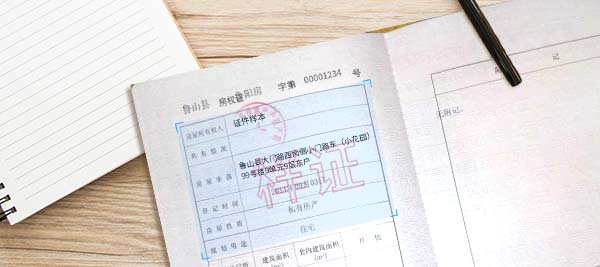 鲁山县 房权证 鲁阳房 字第 00001234 号
房屋所有权人 证件样本
共有情况
房屋坐落 鲁山县大门路西岗侧小门路东(小花园)
99号楼9单元9层东户
登记时间
房屋性质 私有房产
规划用途 住宅
建筑面积 (m²) 套内建筑面积 (m²) 其他
样证
附 记
无附记。